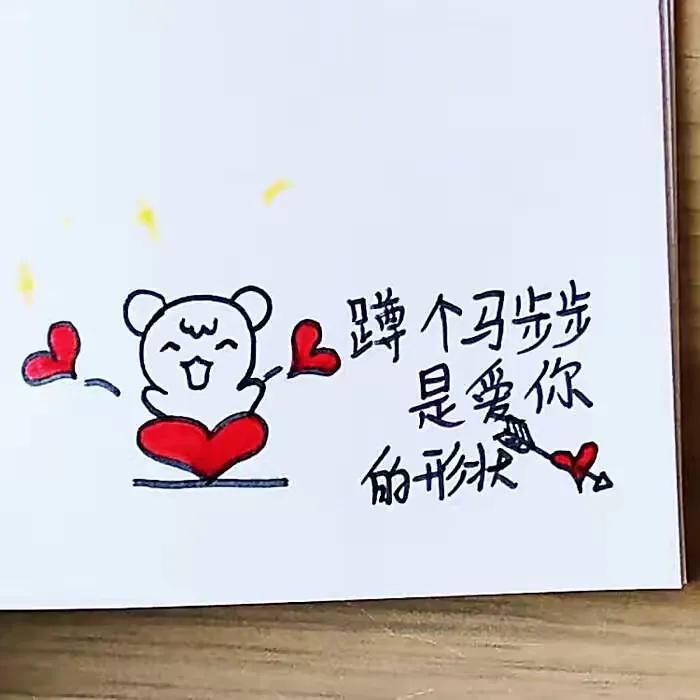 蹲个马步步
是爱你
的形状